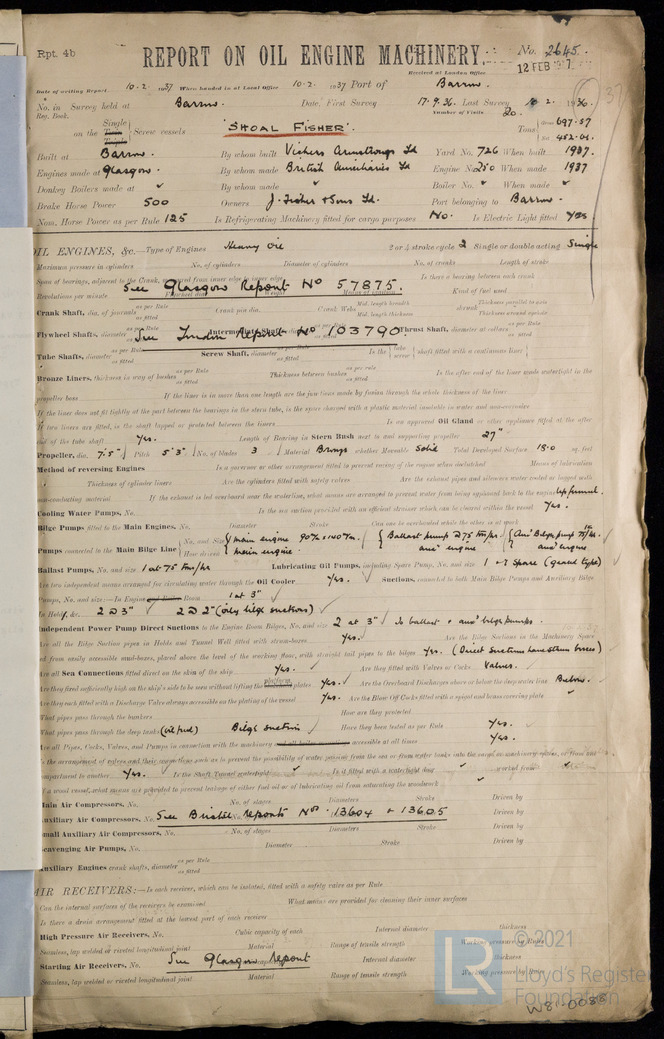 Rpt. 4b
REPORT ON OIL ENGINE MACHINERY.
No. 2645.
Received at London Office
12 FEB
Date of writing Report 10.2.1937 When handed in at Local Office 10.2.1937 Port of Barrow.
No. in Survey held at Barrow. Date, First Survey 17.9.36. Last Survey 10 2. 1936.
Reg. Book. Number of Visits 20.
on the Single Screw vessels "SHOAL FISHER". Tons Gross 697.57
Net 452.01
Built at Barrow. By whom built Vickers Armstrongs Ld Yard No. 726 When built 1937.
Engines made at Glasgow. By whom made British Auxiliaries Ld Engine No. 250 When made 1937
Donkey Boilers made at By whom made Boiler No. When made
Brake Horse Power 500 Owners J. Fisher & Sons Ld. Port belonging to Barrow.
Nom. Horse Power as per Rule 125 Is Refrigerating Machinery fitted for cargo purposes No. Is Electric Light fitted Yes
OIL ENGINES, &c.—Type of Engines Heavy Oil 2 or 4 stroke cycle 2 Single or double acting Single
Maximum pressure in cylinders No. of cylinders Diameter of cylinders No. of cranks Length of stroke
Span of bearings, adjacent to the Crank, measured from inner edge to inner edge Is there a bearing between each crank
See Glasgow Report No 57875.
Revolutions per minute Flywheel dia. Means of ignition Kind of fuel used
Crank Shaft, dia. of journals as per Rule as fitted Crank pin dia. Crank Webs Mid. length breadth Mid. length thickness shrunk Thickness parallel to axis Thickness around eyehole
Flywheel Shafts, diameter as per Rule as fitted Intermediate Shafts, Thrust Shaft, diameter at collars as per Rule as fitted
See London Report No 103790
Tube Shafts, diameter as per Rule as fitted Screw Shaft, diameter as per Rule as fitted Is the tube screw shaft fitted with a continuous liner
Bronze Liners, thickness in way of bushes as per Rule as fitted Thickness between bushes as per rule as fitted Is the after end of the liner made watertight in the
propeller boss If the liner is in more than one length are the joints made by fusion through the whole thickness of the liner
If the liner does not fit tightly at the part between the bearings in the stern tube, is the space charged with a plastic material insoluble in water and non-corrosive
If two liners are fitted, is the shaft lapped or protected between the liners Is an approved Oil Gland or other appliance fitted at the after
end of the tube shaft Yes. Length of Bearing in Stern Bush next to and supporting propeller 27"
Propeller, dia. 7'5" Pitch 5'3" No. of blades 3 Material Bronze whether Moveable Solid Total Developed Surface 18.0 sq. feet
Method of reversing Engines Is a governor or other arrangement fitted to prevent racing of the engine when declutched Means of lubrication
Thickness of cylinder liners Are the cylinders fitted with safety valves Are the exhaust pipes and silencers water cooled or lagged with
non-conducting material If the exhaust is led overboard near the waterline, what means are arranged to prevent water from being syphoned back to the engine Up funnel.
Cooling Water Pumps, No. Is the sea suction provided with an efficient strainer which can be cleared within the vessel Yes.
Bilge Pumps fitted to the Main Engines, No. Diameter Stroke Can one be overhauled while the other is at work
Pumps connected to the Main Bilge Line No. and Size 1 main engine 90 m/m x 140 m/m. Ballast pump @ 75 Tons/hr. Aux. Bilge pump
How driven main engine. aux. engine aux. engine
Ballast Pumps, No. and size 1 at 75 Tons/hr Lubricating Oil Pumps, including Spare Pump, No. and size 1 + 1 Spare (gear type)
Are two independent means arranged for circulating water through the Oil Cooler Yes. Suctions, connected to both Main Bilge Pumps and Auxiliary Bilge
Pumps, No. and size:—In Engine 1 at 3"
In Holds, &c. 2 @ 3" 2 @ 2" (oily bilge suctions)
Independent Power Pump Direct Suctions to the Engine Room Bilges, No. and size 2 at 3" to ballast & aux. bilge pumps.
Are all the Bilge Suction pipes in Holds and Tunnel Well fitted with strum-boxes Yes. Are the Bilge Suctions in the Machinery Space
led from easily accessible mud-boxes, placed above the level of the working floor, with straight tail pipes to the bilges Yes. (Direct Suctions have strum boxes)
Are all Sea Connections fitted direct on the skin of the ship Yes. Are they fitted with Valves or Cocks Valves.
Are they fixed sufficiently high on the ship's side to be seen without lifting the platform plates Yes. Are the Overboard Discharges above or below the deep water line Below.
Are they each fitted with a Discharge Valve always accessible on the plating of the vessel Yes. Are the Blow Off Cocks fitted with a spigot and brass covering plate
What pipes pass through the bunkers How are they protected
What pipes pass through the deep tanks (oil fuel) Bilge suction Have they been tested as per Rule Yes.
Are all Pipes, Cocks, Valves, and Pumps in connection with the machinery accessible at all times Yes.
Is the arrangement of valves and their connections such as to prevent the possibility of water passing from the sea or from water tanks into the cargo or machinery spaces, or from one
compartment to another Yes. Is the Shaft Tunnel watertight Is it fitted with a watertight door worked from
If a wood vessel, what means are provided to prevent leakage of either fuel oil or of lubricating oil from saturating the woodwork
Main Air Compressors, No. No. of stages Diameters Stroke Driven by
Auxiliary Air Compressors, No. No. of stages Diameters Stroke Driven by
See Bristol Reports Nos 13604 & 13605
Small Auxiliary Air Compressors, No. No. of stages Diameters Stroke Driven by
Scavenging Air Pumps, No. Diameter Stroke Driven by
Auxiliary Engines crank shafts, diameter as per Rule as fitted
AIR RECEIVERS:—Is each receiver, which can be isolated, fitted with a safety valve as per Rule
Can the internal surfaces of the receivers be examined What means are provided for cleaning their inner surfaces
Is there a drain arrangement fitted at the lowest part of each receiver
High Pressure Air Receivers, No. Cubic capacity of each Internal diameter thickness
Seamless, lap welded or riveted longitudinal joint Material Range of tensile strength Working pressure by Rules
Starting Air Receivers, No. See Glasgow Report Internal diameter thickness
Seamless, lap welded or riveted longitudinal joint Material Range of tensile strength Working pressure by Rules
LR
© 2021
Lloyd's Register
Foundation
W81-0088